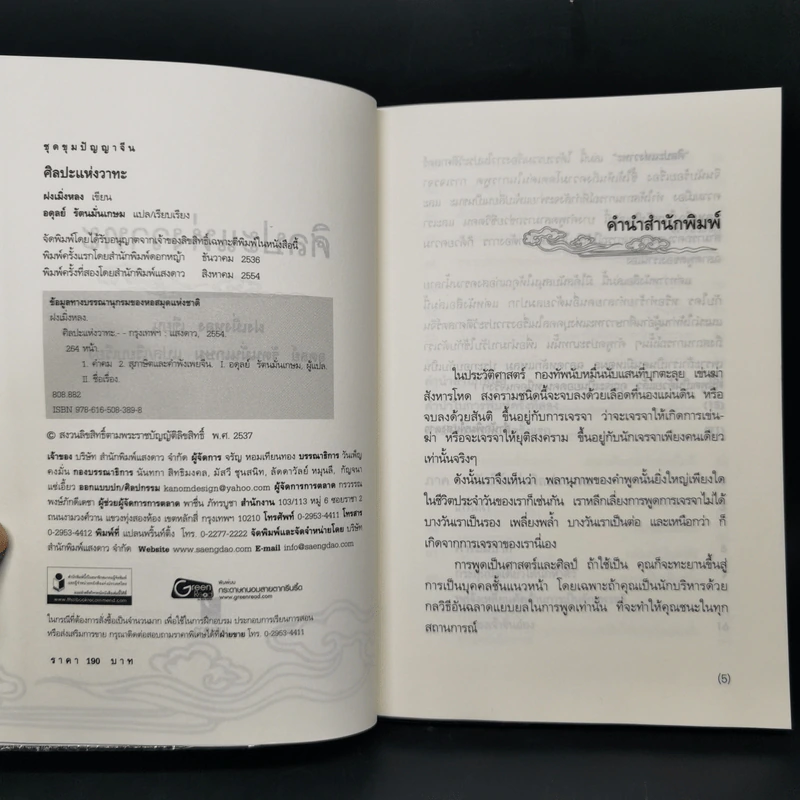 ชุดขุมปัญญาจีน
ศิลปะแห่งวาทะ
ฝงเมิ่งหลง เขียน
อดุลย์ รัตนมั่นเกษม แปล/เรียบเรียง
จัดพิมพ์โดยได้รับอนุญาตจากเจ้าของลิขสิทธิ์เฉพาะตีพิมพ์ในหนังสือนี้
พิมพ์ครั้งแรกโดยสำนักพิมพ์ดอกหญ้า ธันวาคม 2536
พิมพ์ครั้งที่สองโดยสำนักพิมพ์แสงดาว สิงหาคม 2554
ข้อมูลทางบรรณานุกรมของหอสมุดแห่งชาติ
ฝงเมิ่งหลง.
ศิลปะแห่งวาทะ.-- กรุงเทพฯ : แสงดาว, 2554.
264 หน้า.
1. คำคม 2. สุภาษิตและคำพังเพยจีน. I. อดุลย์ รัตนมั่นเกษม, ผู้แปล.
II. ชื่อเรื่อง.
808.882
ISBN 978-616-508-389-8
© สงวนลิขสิทธิ์ตามพระราชบัญญัติลิขสิทธิ์ พ.ศ. 2537
เจ้าของ บริษัท สำนักพิมพ์แสงดาว จำกัด ผู้จัดการ จรัญ หอมเทียนทอง บรรณาธิการ วันเพ็ญ
คงมั่น กองบรรณาธิการ นันทกา สิทธิมงคล, มัสวี ชุนสนิท, ลัดดาวัลย์ หมุนลี, กัญจนา
แซ่เอี้ยว ออกแบบปก/ศิลปกรรม kanomdesign@yahoo.com ผู้จัดการการตลาด กรวรรณ
พงษ์ภักดีเดชา ผู้ช่วยผู้จัดการการตลาด พาขึ้น ภัทรบูชา สำนักงาน 103/113 หมู่ 6 ซอยราชา 2
ถนนงามวงศ์วาน แขวงทุ่งสองห้อง เขตหลักสี่ กรุงเทพฯ 10210 โทรศัพท์ 0-2953-4413 โทรสาร
0-2953-4412 พิมพ์ที่ แปลนพริ้นท์ติ้ง โทร. 0-2277-2222 จัดพิมพ์และจัดจำหน่ายโดย บริษัท
สำนักพิมพ์แสงดาว จำกัด Website www.saengdao.com E-mail info@saengdao.com
Green
Read
พิมพ์บน
กระดาษถนอมสายตากรีนรีด
www.greenread.com
ในกรณีที่ต้องการสั่งซื้อเป็นจำนวนมาก เพื่อใช้ในการฝึกอบรม ประกอบการเรียนการสอน
หรือส่งเสริมการขาย กรุณาติดต่อสอบถามราคาพิเศษได้ที่ฝ่ายขาย โทร. 0-2953-4411
ราคา 190 บาท
คำนำสำนักพิมพ์
ในประวัติศาสตร์ กองทัพนับหมื่นนับแสนที่บุกตะลุย เข่นฆ่า
สังหารโหด สงครามชนิดนี้จะจบลงด้วยเลือดที่นองแผ่นดิน หรือ
จบลงด้วยสันติ ขึ้นอยู่กับการเจรจา ว่าจะเจรจาให้เกิดการเข่น-
ฆ่า หรือจะเจรจาให้ยุติสงคราม ขึ้นอยู่กับนักเจรจาเพียงคนเดียว
เท่านั้นจริงๆ
ดังนั้นเราจึงเห็นว่า พลานุภาพของคำพูดนั้นยิ่งใหญ่เพียงใด
ในชีวิตประจำวันของเราก็เช่นกัน เราหลีกเลี่ยงการพูดการเจรจาไม่ได้
บางวันเราเป็นรอง เพลี่ยงพล้ำ บางวันเราเป็นต่อ และเหนือกว่า ก็
เกิดจากการเจรจาของเรานี่เอง
การพูดเป็นศาสตร์และศิลป์ ถ้าใช้เป็น คุณก็จะทะยานขึ้นสู่
การเป็นบุคคลชั้นแนวหน้า โดยเฉพาะถ้าคุณเป็นนักบริหารด้วย
กลวิธีอันฉลาดแยบยลในการพูดเท่านั้น ที่จะทำให้คุณชนะในทุก
สถานการณ์
(5)